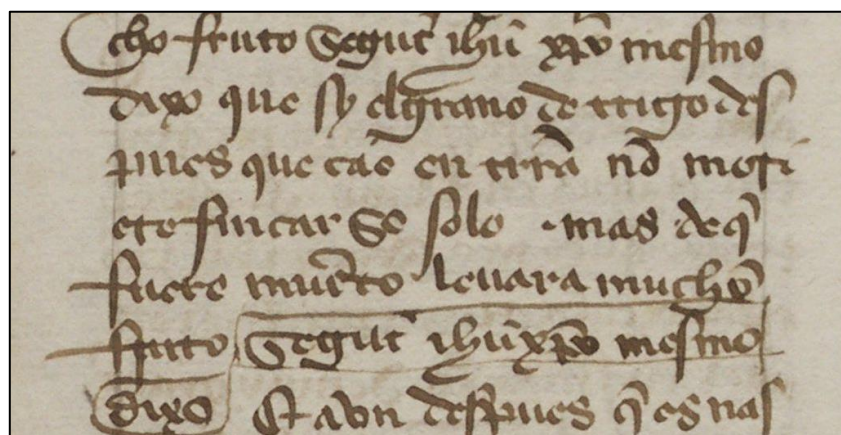 cho fruto Segut̃ ihũ xp̃o mesmo
dixo que sy elgrano de trigo des
pues que cae en trr̃a nõ mori
ere fincar se solo . mas de q̃
fuere muẽto leuara much̃o
fruto Segut̃ ihũxp̃o mesmo
dixo Et avn despues q̃ es nas